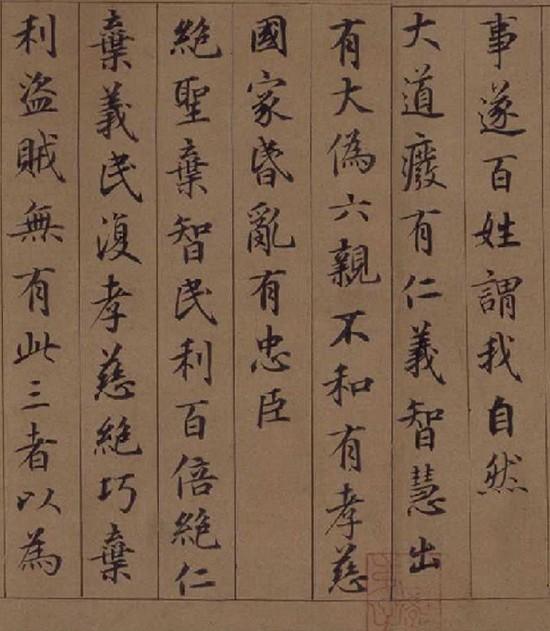 事遂百姓謂我自然
大道癈有仁義智慧出
有大偽六親不和有孝慈
國家昏亂有忠臣
絕聖棄智民利百倍絕仁
棄義民復孝慈絕巧棄
利盜賊無有此三者以為